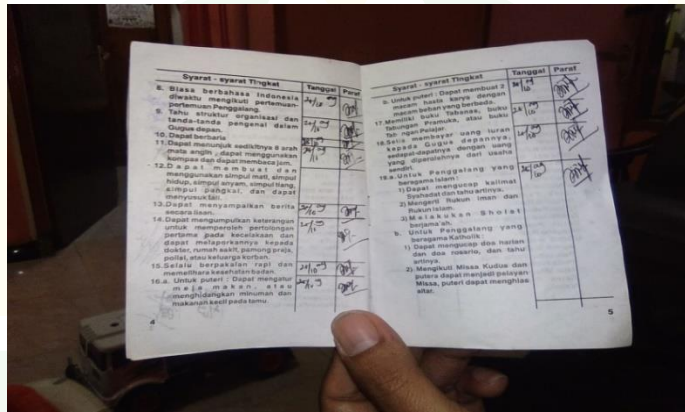 Syarat - syarat Tingkat Tanggal Paraf
8. Biasa berbahasa Indonesia
diwaktu mengikuti pertemuan-
pertemuan Penggalang.
9. Tahu struktur organisasi dan
tanda-tanda pengenal dalam
Gugus depan.
10. Dapat berbaris
11. Dapat menunjuk sedikitnya 8 arah
mata angin, dapat menggunakan
kompas dan dapat membaca jam.
12. Dapat membuat dan
menggunakan simpul mati, simpul
hidup, simpul anyam, simpul tiang,
simpul pangkal, dan dapat
menyusuk tali.
13. Dapat menyampaikan berita
secara lisan.
14. Dapat mengumpulkan keterangan
untuk memperoleh pertolongan
pertama pada kecelakaan dan
dapat melaporkannya kepada
dokter, rumah sakit, pamong praja,
polisi, atau keluarga korban.
15. Selalu berpakaian rapi dan
memelihara kesehatan badan.
16. a. Untuk puteri : Dapat mengatur
meja makan, atau
menghidangkan minuman dan
makanan kecil pada tamu.
4
Syarat - syarat Tingkat Tanggal Paraf
b. Untuk puteri : Dapat membuat 2
macam hasta karya dengan
macam bahan yang berbeda.
17. Memiliki buku Tabanas, buku
Tabungan Pramuka, atau buku
Tabungan Pelajar.
18. Setia membayar uang iuran
kepada Gugus depannya,
sedapat-dapatnya dengan uang
yang diperolehnya dari usaha
sendiri.
19. a. Untuk Penggalang yang
beragama Islam :
1) Dapat mengucap kalimat
Syahadat dan tahu artinya.
2) Mengerti Rukun Iman dan
Rukun Islam.
3) Melakukan Sholat
berjama'ah.
b. Untuk Penggalang yang
beragama Katholik :
1) Dapat mengucap doa harian
dan doa rosario, dan tahu
artinya.
2) Mengikuti Missa Kudus dan
putera dapat menjadi pelayan
Missa, puteri dapat menghias
altar.
5